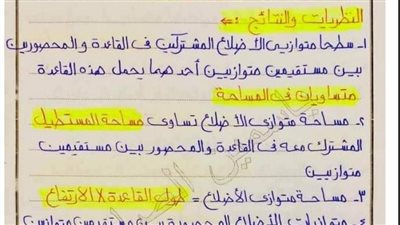 النظريات والنتائج :-
١- سطحا متوازيى الأضلاع المشتركين فى القاعدة والمحصورين
بين مستقيمين متوازيين أحدهما يحمل هذه القاعدة
متساويان فى المساحة
٢- مساحة متوازى الأضلاع تساوى مساحة المستطيل
المشترك معه فى القاعدة والمحصور بين مستقيمين
متوازيين
٣- مساحة متوازى الأضلاع = طول القاعدة X الارتفاع
٤- متوازيات الأضلاع المحصورة بين مستقيمين متوازيين